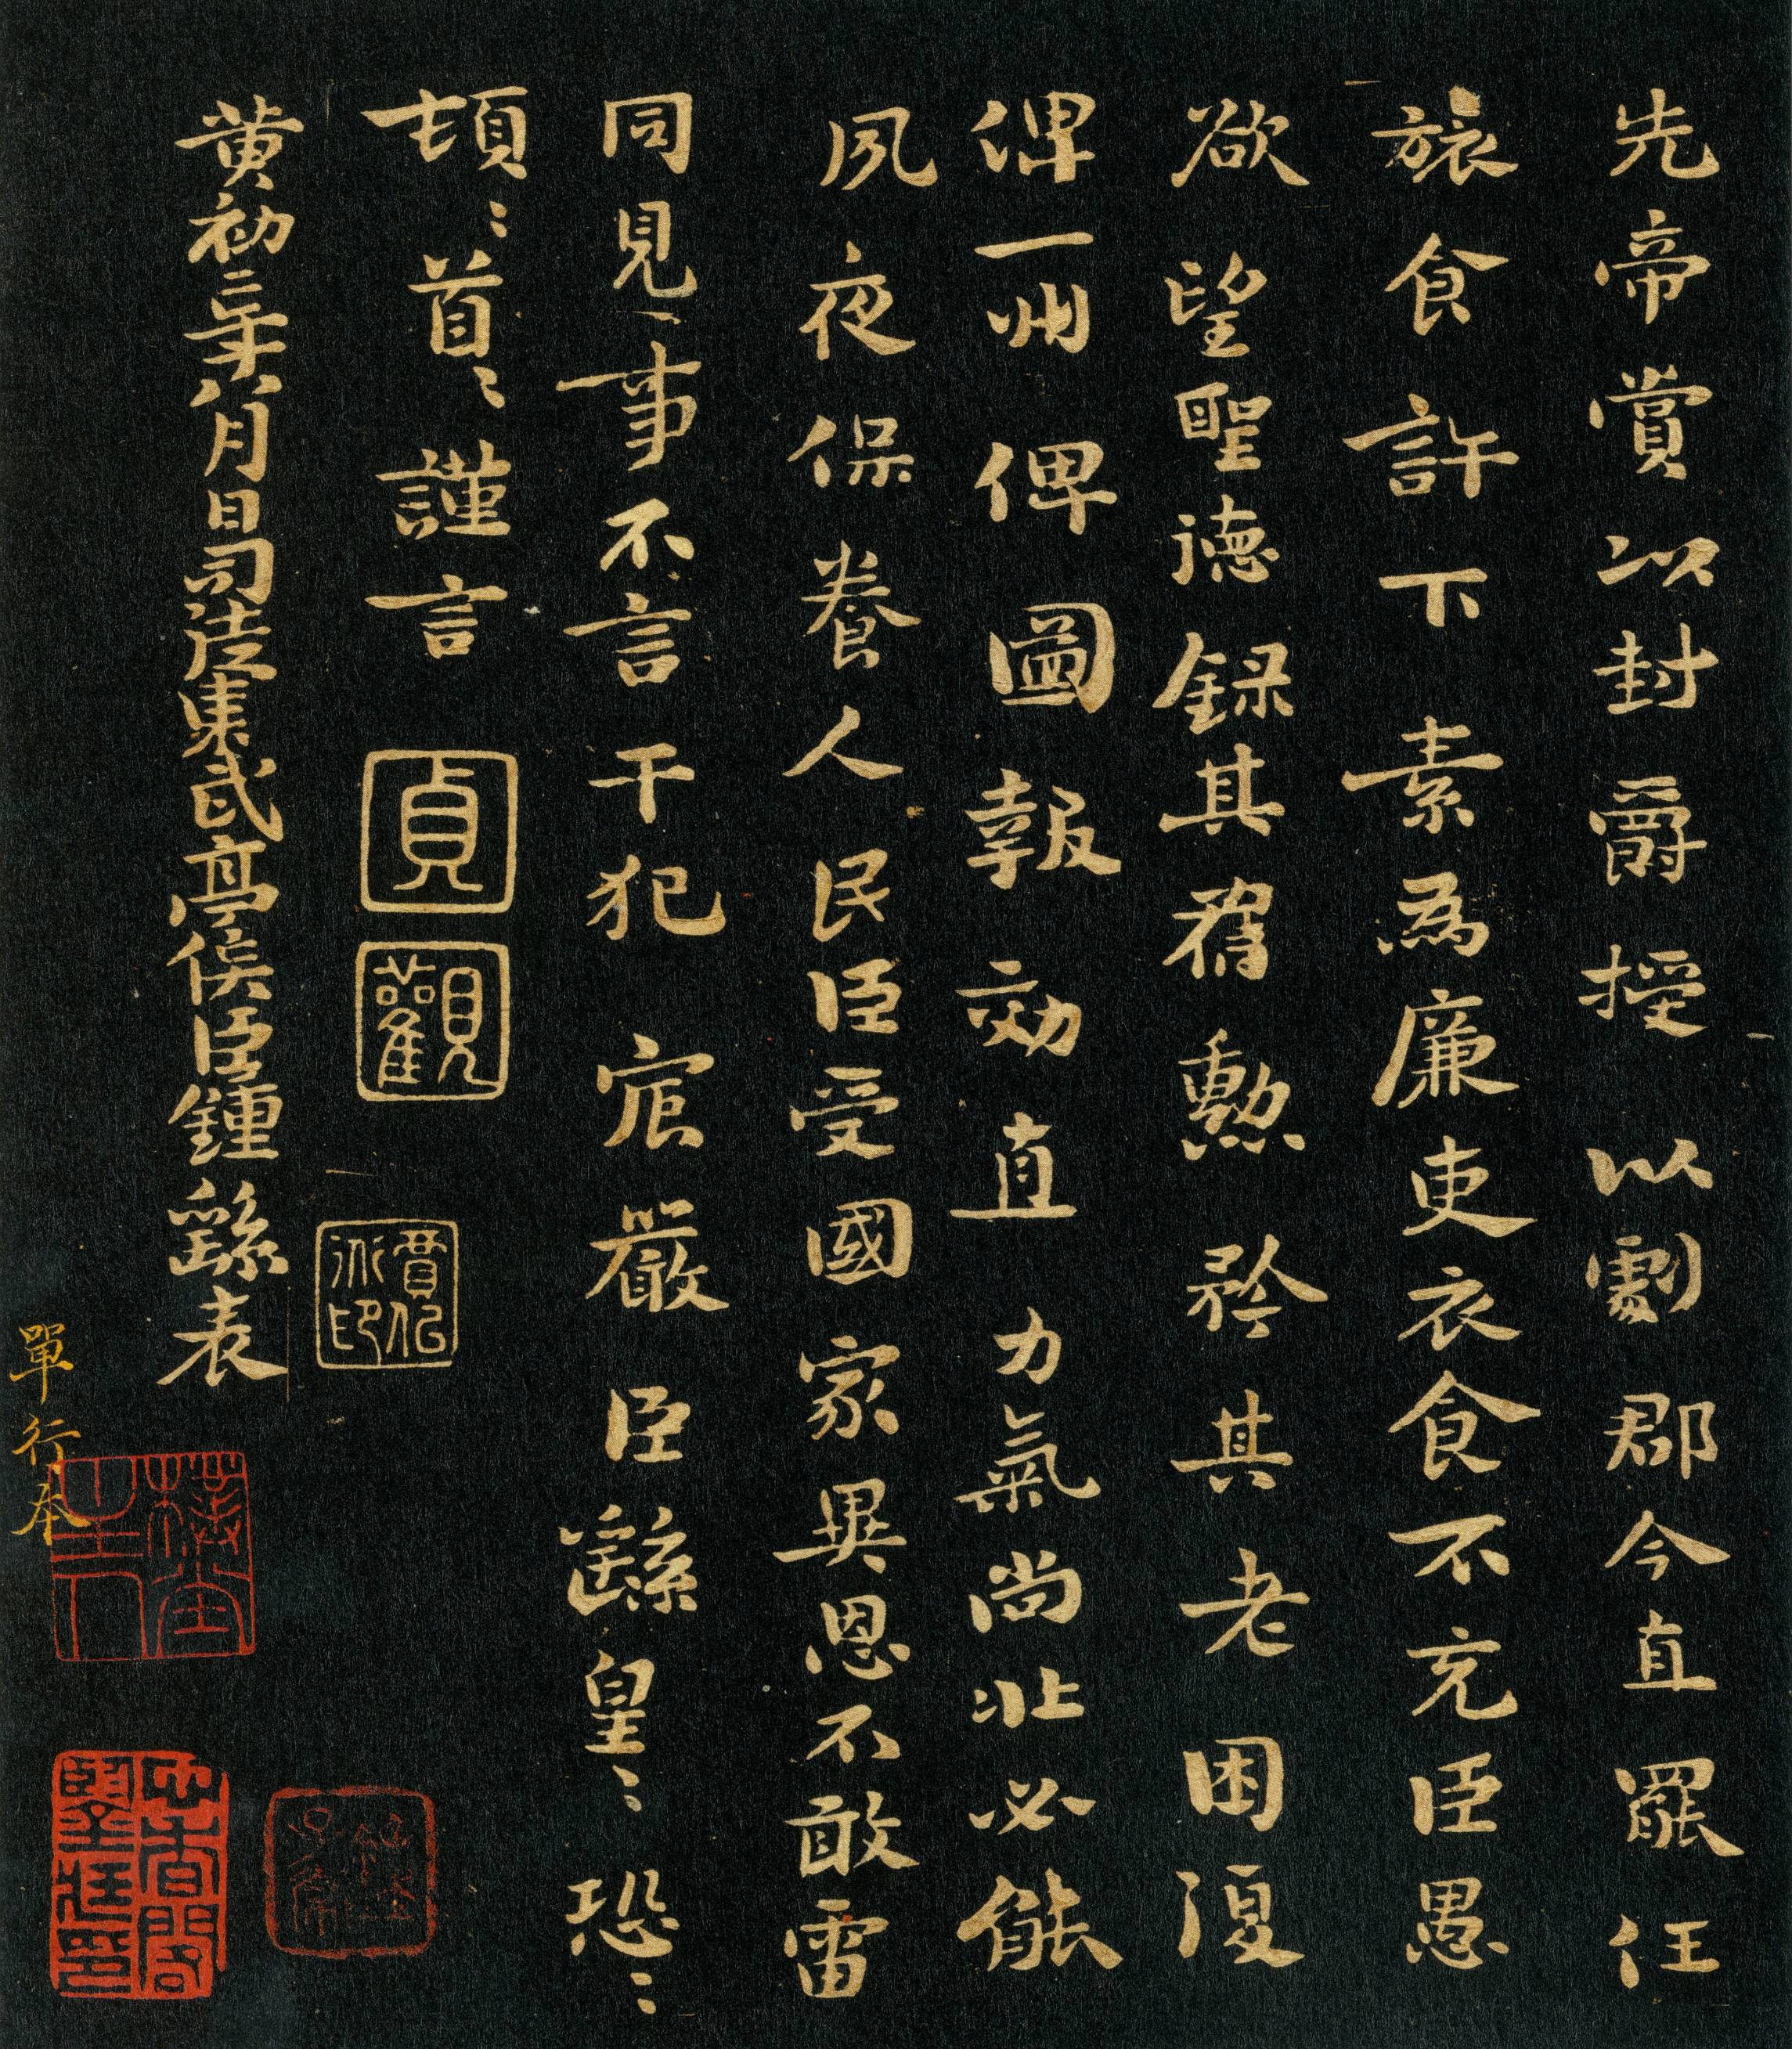 先帝賞以封爵授以劇郡今直罷任
旅食許下素為廉吏衣食不充臣愚
欲望聖德録其舊勲矜其老困復
俾一州俾圖報効直力氣尚壯必能
夙夜保養人民臣受國家異恩不敢雷
同見事不言干犯宸嚴臣繇皇〻恐〻
頓〻首〻謹言
貞
觀
黄初二年八月日司徒東武亭侯臣鍾繇表
單行奉